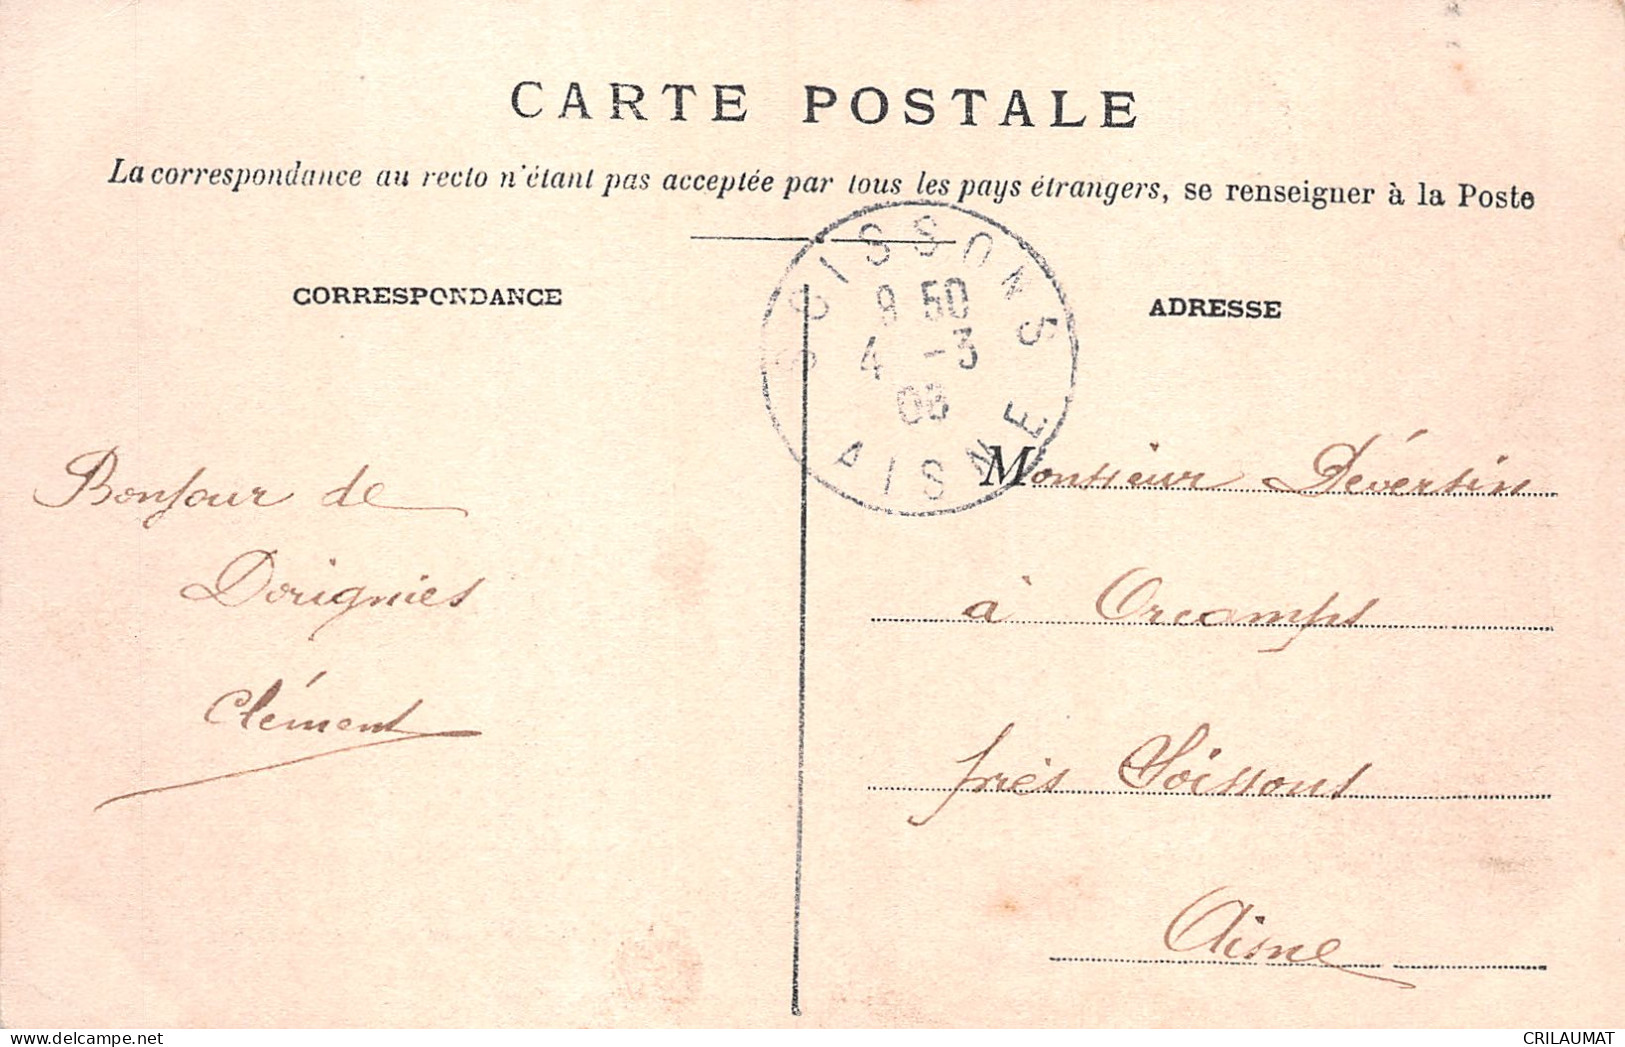 CARTE POSTALE
La correspondance au recto n'étant pas acceptée par tous les pays étrangers, se renseigner à la Poste
CORRESPONDANCE
ADRESSE
SOISSONS
9 50
4 -3
06
AISNE
Bonjour de
Dorignies
Clément
Monsieur Déversin
à Orcamps
près Soissons
Aisne
CRILAUMAT